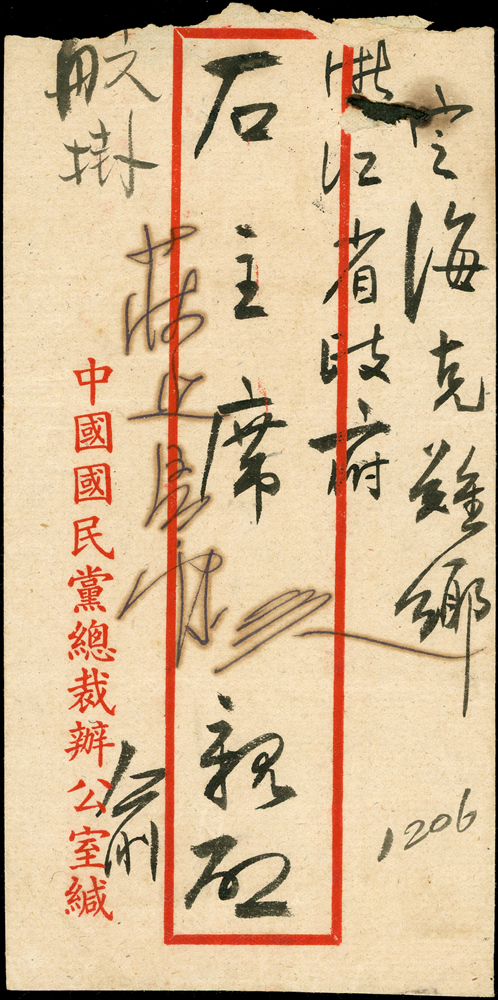 定海克難鄉
浙江省政府
石主席 親啟
航掛
中國國民黨總裁辦公室緘
俞
1206